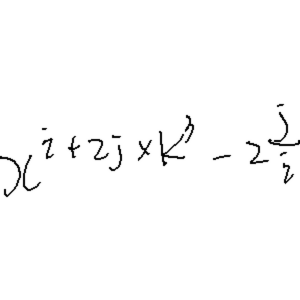 x^{i+2j} × k^3 - 2\frac{j}{i}